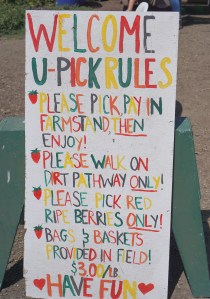 WELCOME
U-PICK RULES
PLEASE PICK, PAY IN
FARMSTAND, THEN
ENJOY!
PLEASE WALK ON
DIRT PATHWAY ONLY!
PLEASE PICK RED
RIPE BERRIES ONLY!
BAGS & BASKETS
PROVIDED IN FIELD!
$3.00/LB.
HAVE FUN